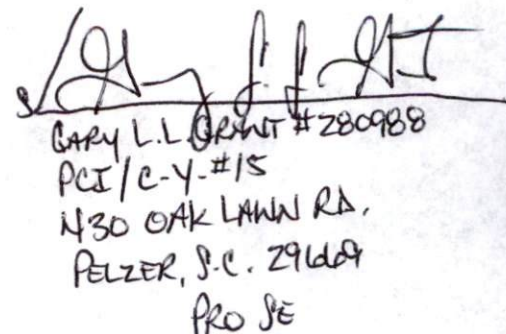 s/ Gary L. L. Grant
GARY L.L. GRANT #280988
PCI/C-Y-#15
430 OAK LAWN RD.
PELZER, S.C. 29669
PRO SE